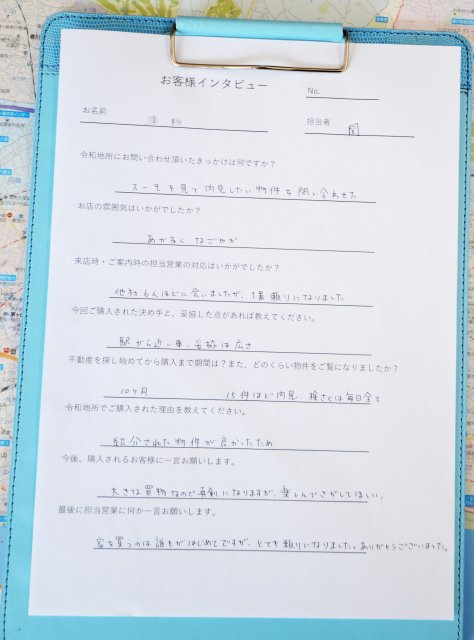 お客様インタビュー
No.
お名前
担当者
令和地所にお問い合わせ頂いたきっかけは何ですか？
スーモを見て内見したい物件を問い合わせた
お店の雰囲気はいかがでしたか？
あかるく なごやか
来店時・ご案内時の担当営業の対応はいかがでしたか？
他社6人ほどに会いましたが、1番頼りになりました
今回ご購入された決め手と、妥協した点があれば教えてください。
駅から近い事、妥協は広さ
不動産を探し始めてから購入まで期間は？また、どのくらい物件をご覧になりましたか？
10ヶ月 15件ほど内見、検さくは毎日全て
令和地所でご購入された理由を教えてください。
紹介された物件が良かったため
今後、購入されるお客様に一言お願いします。
大きな買物なので真剣になりますが、楽しんでさがしてほしい。
最後に担当営業に何か一言お願いします。
家を買うのは誰もがはじめてですが、とても頼りになりました。ありがとうございました。